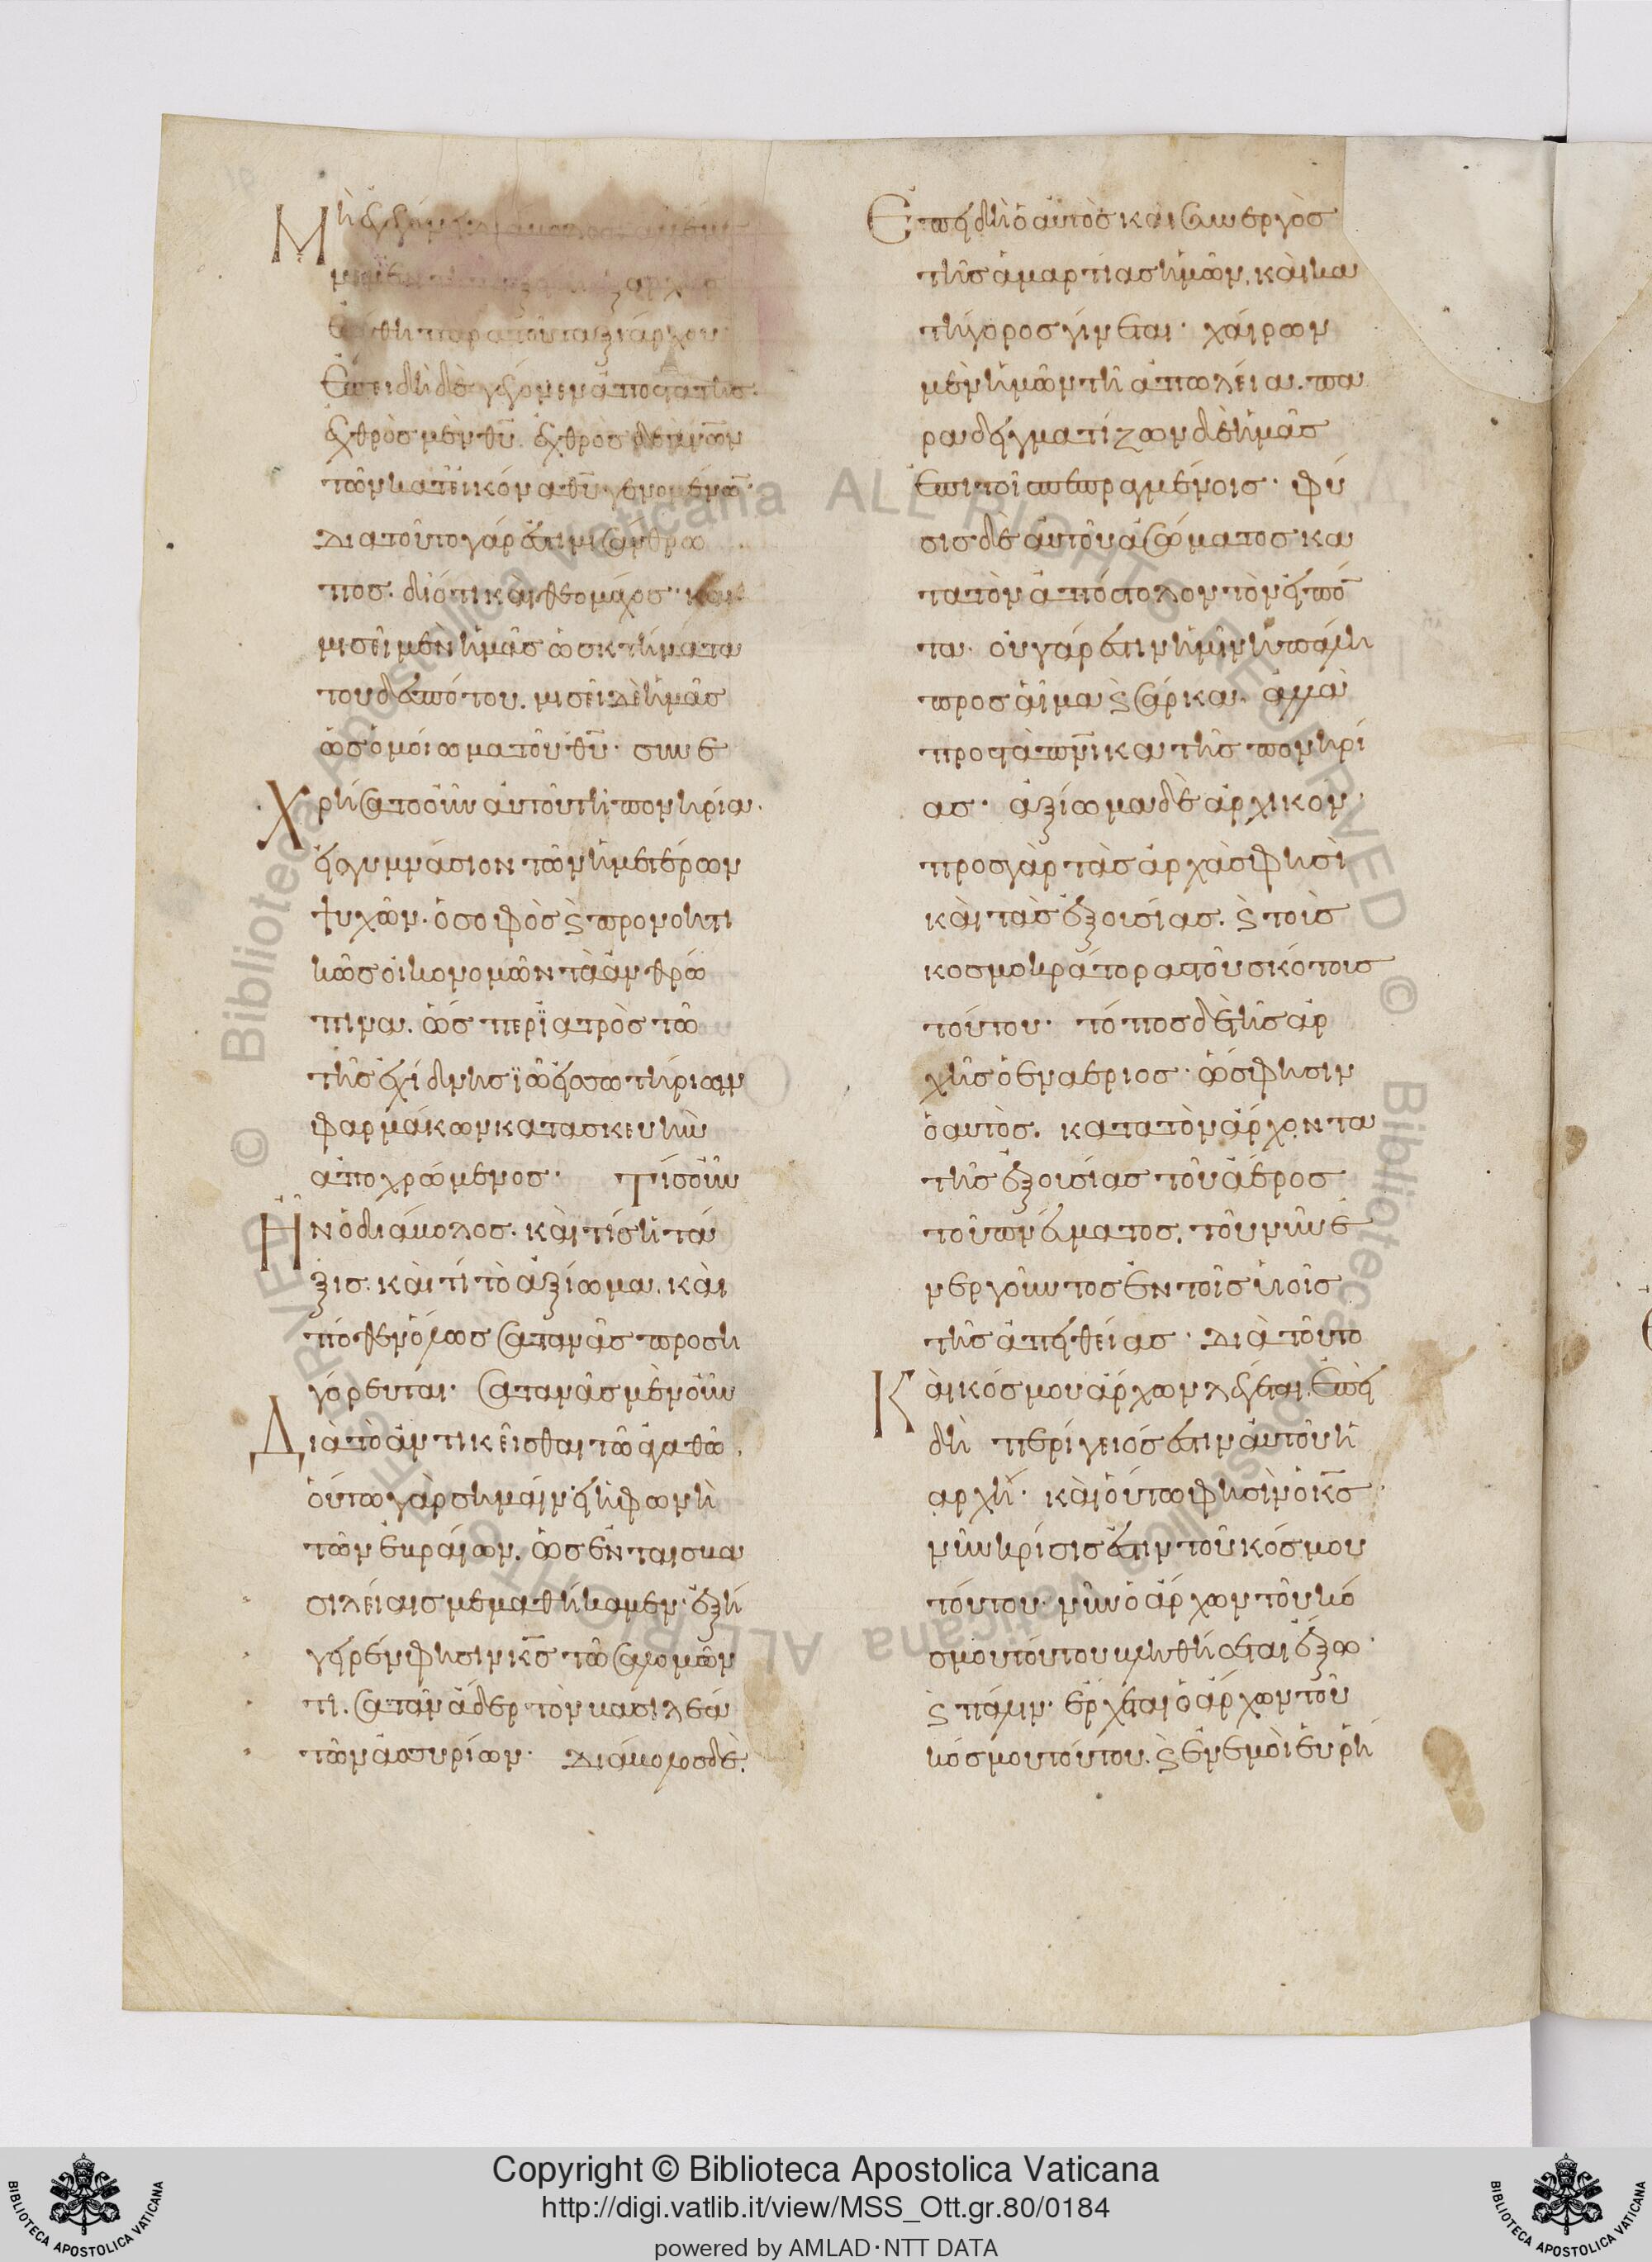 Μὴ
ἐπειδὴ δὲ γέγονεν ἀποστάτης.
ἐχθρὸς μὲν θυ. ἐχθρος δὲ ἀνων
τῶν κατ εἰκόνα θυ γενομένων.
Διατοῦτο γάρ ἐστι μισάνθρω
πος. διότι καὶ θεομάχος. καὶ
μισεῖ μὲν ἡμᾶς ὡς κτήματα
του δεσπότου. μισεῖ δὲ ἡμᾶς
ὡς ὁμοίωμα τοῦ θυ. συνε
Χρήσατο οὖν αὐτοῦ τῆ πονηρία.
εἰς γυμνάσιον τῶν ἡμετέρων
ψυχῶν. ὁ σοφὸς ϛ προνοητι
κῶς οἰκονομῶν τὰ ἀνθρώ
πινα. ὡς περ ϊατρὸς τῶ
τῆς ἐχίδνης ϊῶ εἰς σωτηρίων
φαρμάκων κατασκευὴν
ἀποχρώμενος. Τίς οὖν
Ἦν ὁ διάβολος. καὶ τίς ἡ τά
ξις. καὶ τί τὸ ἀξίωμα. καὶ
πόθεν ὅλως σατανᾶς προση
γόρευται. σατανᾶς μὲν οὖν
Διὰ τὸ ἀντικεῖσθαι τῶ ἀγαθῶ.
οὕτω γὰρ σημαίνει ἡ φωνὴ
τῶν ἑβραίων. ὡς ἐν ταις βα
σιλείαις μεμαθήκαμεν. ἐξή
γειρεν φησιν κς τῶ σαλομῶν
τι. σατὰν ἄδερ τὸν βασιλέα
τῶν ἀσσυρίων. Διάβολος δὲ.
Ἐπειδὴ ὁ αὐτὸς καὶ συνεργὸς
τῆς ἁμαρτίας ἡμῶν. καὶ κα
τήγορος γίνεται. χαίρων
μὲν ἡμῶν τῆ ἀπωλεία. πα
ραδειγματίζων δὲ ἡμᾶς
ἐπι τοῖς πεπραγμένοις. φύ
σις δὲ αὐτοῦ ἀσώματος κα
τα τὸν ἀπόστολον τὸν εἰπό
τα. οὐ γάρ ἐστιν ἡμῖν ἡ πάλη
προς αἷμα ϛ σάρκα. ἀλλὰ
προς τὰ πνικα τῆς πονηρί
ας. ἀξίωμα δὲ ἀρχικόν.
προς γὰρ τὰς ἀρχάς φησὶ
καὶ τὰς ἐξουσίας. ϛ τοὺς
κοσμοκράτορας τοῦ σκότους
τούτου. τόπος δὲ τῆς ἀρ
χῆς ὁ ἐναέριος. ὥς φησιν
ὁ αυτὸς. κατα τὸν ἄρχοντα
τῆς ἐξουσίας τοῦ ἀέρος
τοῦ πνεύματος. τοῦ νῦν ἐ
νεργοῦντος ἐν τοῖς υἱοῖς
τῆς ἀπειθείας. Διὰ τοῦτο
Καὶ κόσμου ἄρχων λέγεται. ἐπει
δὴ περίγειός ἐστιν αὐτοῦ ἡ
αρχή. καὶ οὕτω φησὶν ὁ κς
νῦν κρίσις ἐστιν τοῦ κόσμου
τούτου. νῦν ὁ ἄρχων τοῦ κό
σμου τούτου βληθήσεται ἔξω.
ϛ πάλιν. ἔρχεται ὁ ἄρχων τοῦ
κόσμου τούτου. ϛ ἐν ἐμοὶ εὑρή
© Biblioteca Apostolica Vaticana ALL RIGHTS RESERVED
Copyright © Biblioteca Apostolica Vaticana
http://digi.vatlib.it/view/MSS_Ott.gr.80/0184
powered by AMLAD·NTT DATA
BIBLIOTECA APOSTOLICA VATICANA
BIBLIOTECA APOSTOLICA VATICANA